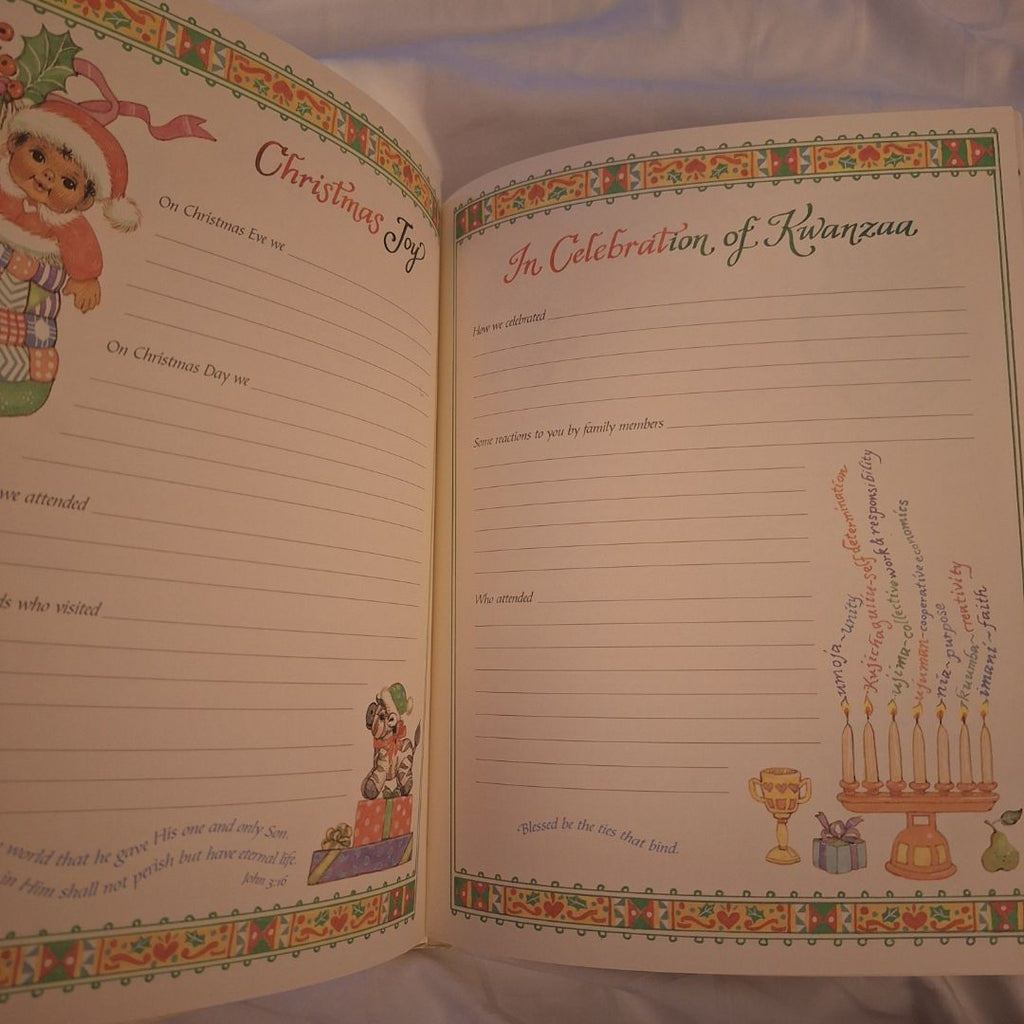 Christmas Joy
On Christmas Eve we
On Christmas Day we
we attended
ds who visited
world that he gave His one and only Son.
in Him shall not perish but have eternal life.
John 3:16
In Celebration of Kwanzaa
How we celebrated
Some reactions to you by family members
Who attended
umoja~unity
Kujichagulia~self determination
ujima~collective work & responsibility
ujuman~cooperative economics
nia~purpose
kuumba~creativity
imani~faith
Blessed be the ties that bind.